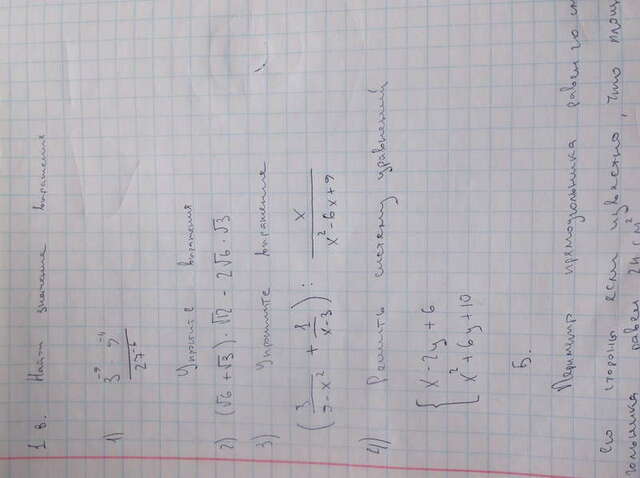 1 в. Найти значение выражения
1) 3⁻⁹ 9⁻⁴ / 27⁻⁶
Упростите выражения
2) (√6 + √3) · √12 - 2√6 · √3
3) Упростите выражения
(3 / 9 - x² + 1 / x - 3) : x / x² - 6x + 9
4) Решить систему уравнений
{ x - 2y + 6
x² + 6y + 10
5.
Периметр прямоугольника равен
его стороны если известно, что площ
равен 24 см²